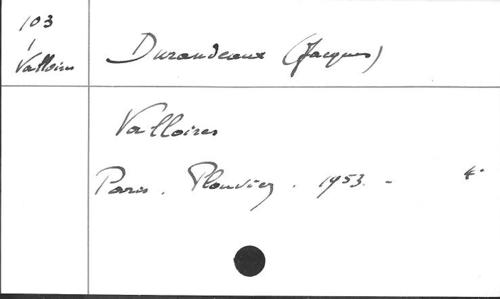 103
Valloires
Durandeaux (Jacques)
Valloires
Paris. Plouvier. 1953. - 4°